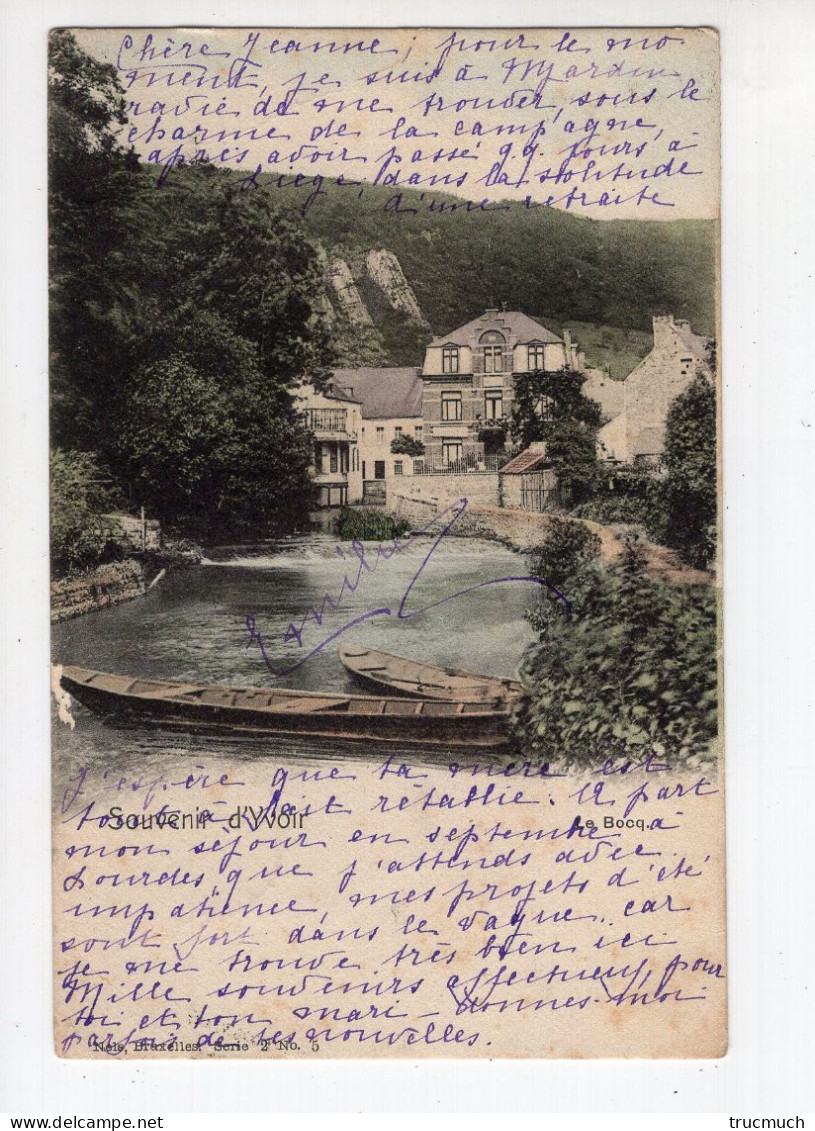 Chère Jeanne, pour le mo
ment, je suis à Mjardin
ravie de me trouver, sous le
charme de la campagne,
après avoir passé qq. jours à
Liège, dans la solitude
d'une retraite
Emilie
J'espère que ta mère est
tout à fait rétablie. A part
Souvenir d'Yvoir
Le Bocq.
mon séjour en septembre à
Lourdes que j'attends avec
impatience, mes projets d'été
sont fort dans le vague, car
je me trouve très bien ici
Mille souvenirs affectueux, pour
toi et ton mari - donnes-moi
parfois de tes nouvelles.
Nels, Bruxelles. Serie 2 No. 5
delcampe.net
trucmuch